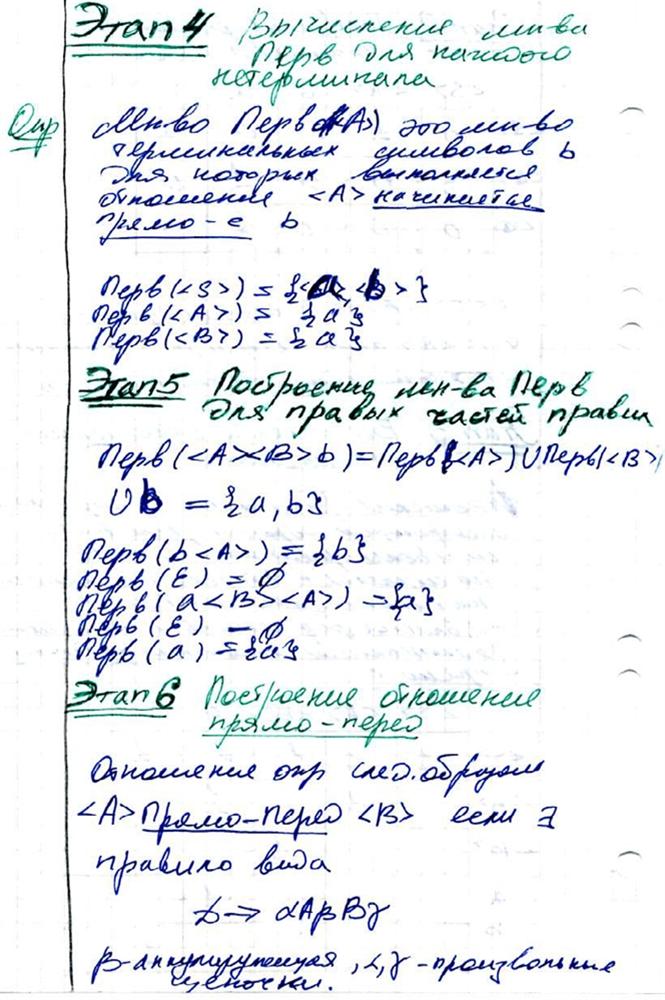 Этап 4 Вычисление мн-ва
Перв для каждого
нетерминала
Опр Мн-во Перв(<A>) это мн-во
терминальных символов b
для которых выполняется
отношение <A> начинается
прямо-с b
Перв(<S>) = {a, b}
Перв(<A>) = {a}
Перв(<B>) = {a}
Этап 5 Построение мн-ва Перв
для правых частей правил
Перв(<A><B>b) = Перв(<A>) ∪ Перв(<B>)
∪ b = {a, b}
Перв(b<A>) = {b}
Перв(ε) = ∅
Перв(a<B><A>) = {a}
Перв(ε) – ∅
Перв(a) = {a}
Этап 6 Построение отношение
прямо-перед
Отношение опр след. образом
<A> Прямо-Перед <B> если ∃
правило вида
→ αAβBγ
β-аннулирующая, α, γ - произвольные
цепочки.